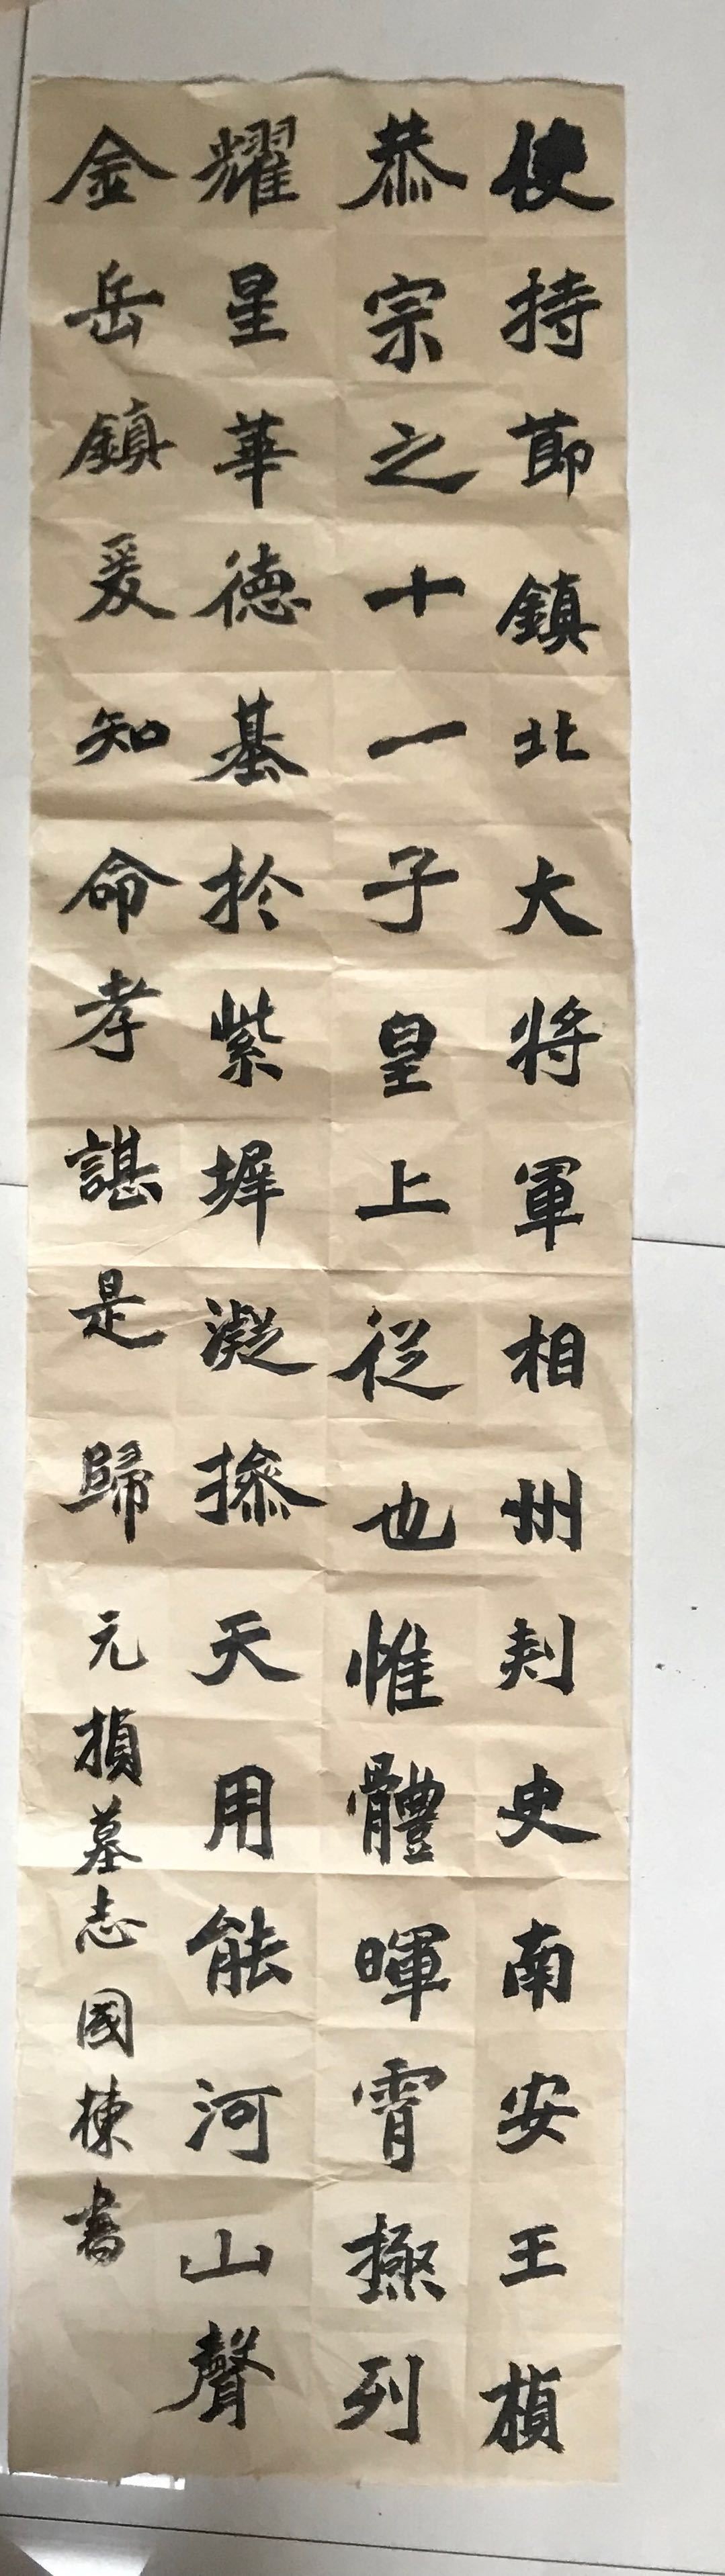 使持節鎮北大將軍相州刾史南安王楨
恭宗之十一子皇上從也惟體暉霄極列
耀星華德基於紫墀凝操天用能河山聲
金岳鎮爰知命孝諶是歸
元楨墓志國棟書